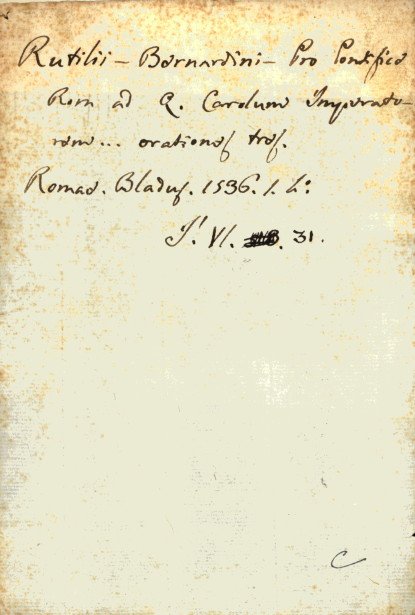 Rutilii - Bernardini - Pro Pontifice
Rom ad Q. Carolum Imperato-
rem... orationes tres.
Romae. Bladus. 1536. 1. 4:
VI. 31.
C